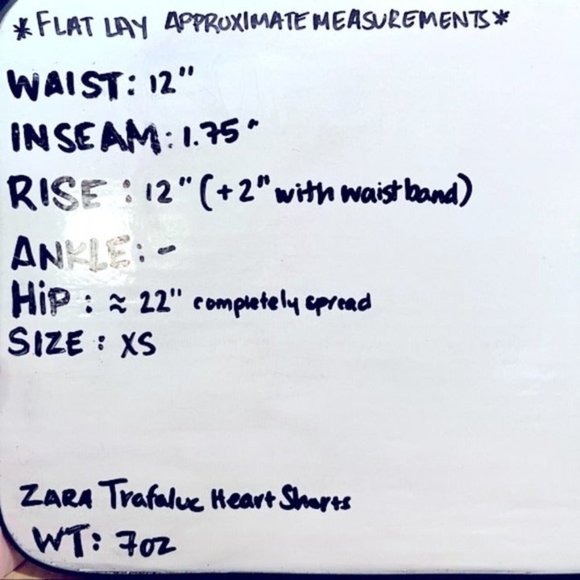 *FLAT LAY APPROXIMATE MEASUREMENTS*
WAIST: 12"
INSEAM: 1.75"
RISE: 12" (+2" with waistband)
ANKLE: -
HiP: ≈ 22" completely spread
SIZE: XS
ZARA Trafaluc Heart Shorts
WT: 7oz